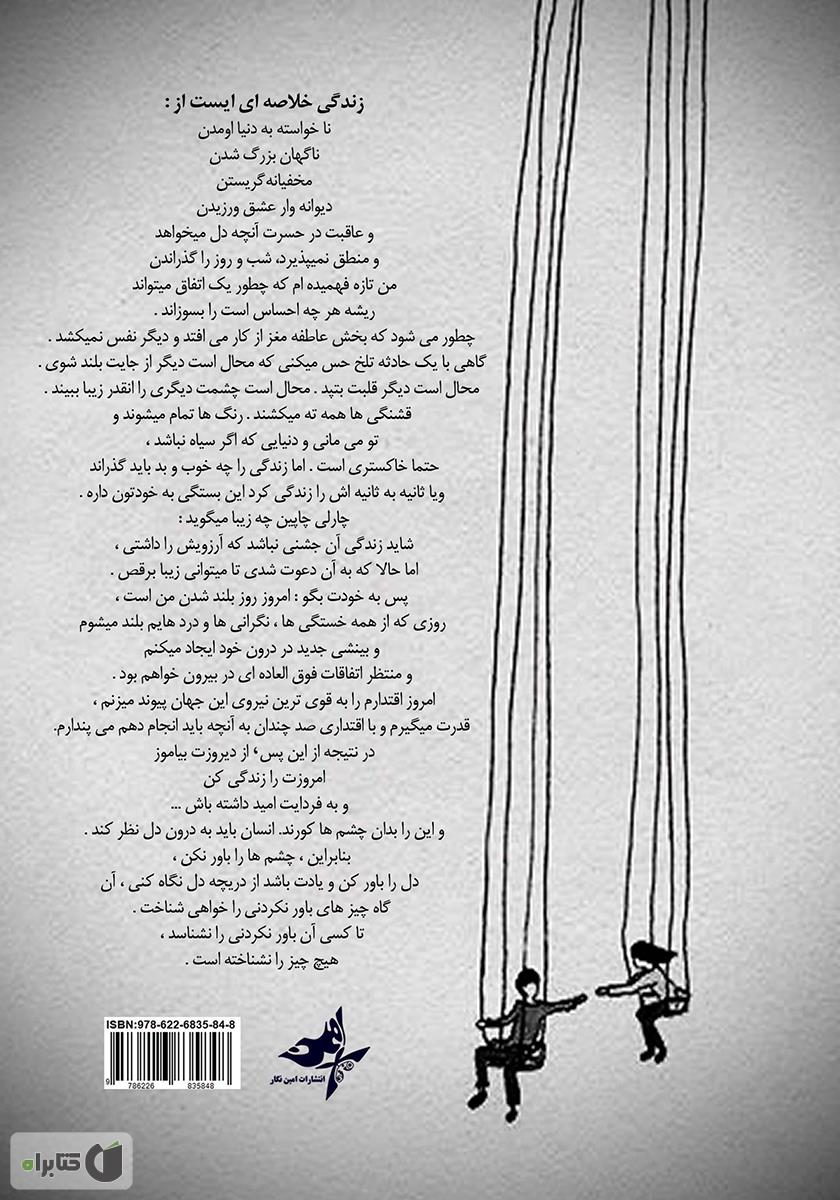 زندگی خلاصه ای ایست از :
نا خواسته به دنیا اومدن
ناگهان بزرگ شدن
مخفیانه گریستن
دیوانه وار عشق ورزیدن
و عاقبت در حسرت آنچه دل میخواهد
و منطق نمیپذیرد، شب و روز را گذراندن
من تازه فهمیده ام که چطور یک اتفاق میتواند
ریشه هر چه احساس است را بسوزاند .
چطور می شود که بخش عاطفه مغز از کار می افتد و دیگر نفس نمیکشد .
گاهی با یک حادثه تلخ حس میکنی که محال است دیگر از جایت بلند شوی .
محال است دیگر قلبت بتپد . محال است چشمت دیگری را انقدر زیبا ببیند .
قشنگی ها همه ته میکشند . رنگ ها تمام میشوند و
تو می مانی و دنیایی که اگر سیاه نباشد ،
حتما خاکستری است . اما زندگی را چه خوب و بد باید گذراند
ویا ثانیه به ثانیه اش را زندگی کرد این بستگی به خودتون داره .
چارلی چاپین چه زیبا میگوید :
شاید زندگی آن جشنی نباشد که آرزویش را داشتی ،
اما حالا که به آن دعوت شدی تا میتوانی زیبا برقص .
پس به خودت بگو : امروز روز بلند شدن من است ،
روزی که از همه خستگی ها ، نگرانی ها و درد هایم بلند میشوم
و بینشی جدید در درون خود ایجاد میکنم
و منتظر اتفاقات فوق العاده ای در بیرون خواهم بود .
امروز اقتدارم را به قوی ترین نیروی این جهان پیوند میزنم ،
قدرت میگیرم و با اقتداری صد چندان به آنچه باید انجام دهم می پندارم.
در نتیجه از این پس، از دیروزت بیاموز
امروزت را زندگی کن
و به فردایت امید داشته باش ...
و این را بدان چشم ها کورند. انسان باید به درون دل نظر کند .
بنابراین ، چشم ها را باور نکن ،
دل را باور کن و یادت باشد از دریچه دل نگاه کنی ، آن
گاه چیز های باور نکردنی را خواهی شناخت .
تا کسی آن باور نکردنی را نشناسد ،
هیچ چیز را نشناخته است .
ISBN:978-622-6835-84-8
9 786226 835848
امین نگار
انتشارات امین نگار
کتابراه